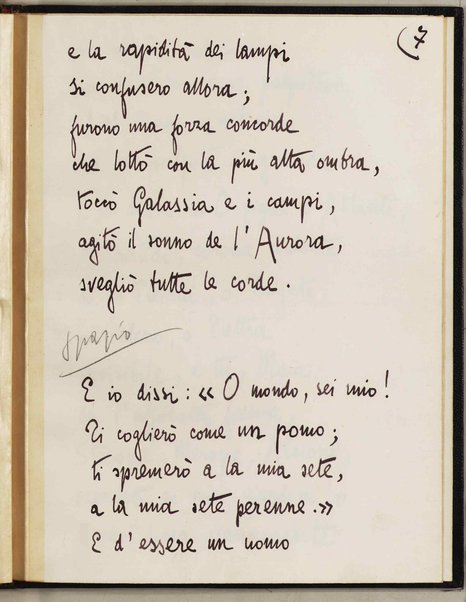 (7
e la rapidità dei lampi
si confusero allora;
furono una forza concorde
che lottò con la più alta ombra,
toccò Galassia e i campi,
agitò il sonno de l'Aurora,
svegliò tutte le corde.
spazio
E io dissi: « O mondo, sei mio!
Ti coglierò come un pomo;
ti spremerò a la mia sete,
a la mia sete perenne.»
E d'essere un uomo